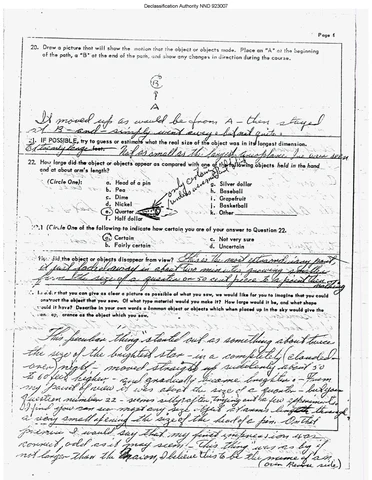 Declassification Authority NND 923007
Page 4
20. Draw a picture that will show the motion that the object or objects made. Place an "A" at the beginning
of the path, a "B" at the end of the path, and show any changes in direction during the course.
B
A
It moved up as would be from A - then stayed
at B - and simply went away; but not quite.
21. IF POSSIBLE, try to guess or estimate what the real size of the object was in its longest dimension.
Not as small as the largest aeroplane I've ever seen
22. How large did the object or objects appear as compared with one of the following objects held in the hand
and at about arm's length?
(Circle One):
a. Head of a pin
b. Pea
c. Dime
d. Nickel
e. Quarter
f. Half dollar
g. Silver dollar
h. Baseball
i. Grapefruit
j. Basketball
k. Other
only certain
(Circle One of the following to indicate how certain you are of your answer to Question 22.
a. Certain
b. Fairly certain
c. Not very sure
d. Uncertain
did the object or objects disappear from view? This is the most unusual part
it just faded away in about two minutes growing smaller
from the size of a quarter or 50 cent piece to a point
In order that you can give as clear a picture as possible of what you saw, we would like for you to imagine that you could
construct the object that you saw. Of what type material would you make it? How large would it be, and what shape
would it have? Describe in your own words a common object or objects which when placed up in the sky would give the
same appearance as the object which you saw.
This peculiar "thing" stood out as something about twice
the size of the brightest star - in a completely clouded-
over night - moved straight up suddenly about 50
to 60 feet higher - and gradually became brighter - From
my point of view it was about the size of a quarter - but your
question number 22 - seems silly after trying out a few
I find you can see most any size object at arms length through
a very small opening the size of the head of a pin.
I would say that my first impression was
correct, odd as it may seem - This "thing" was as big if
not larger than the moon, I believe this to be the
(over Reverse side)